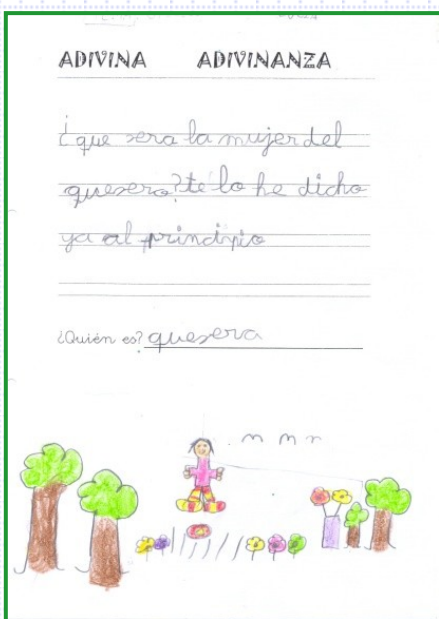 ADIVINA ADIVINANZA
¿que sera la mujer del
quesero? te lo he dicho
ya al principio
¿Quién es? quesera